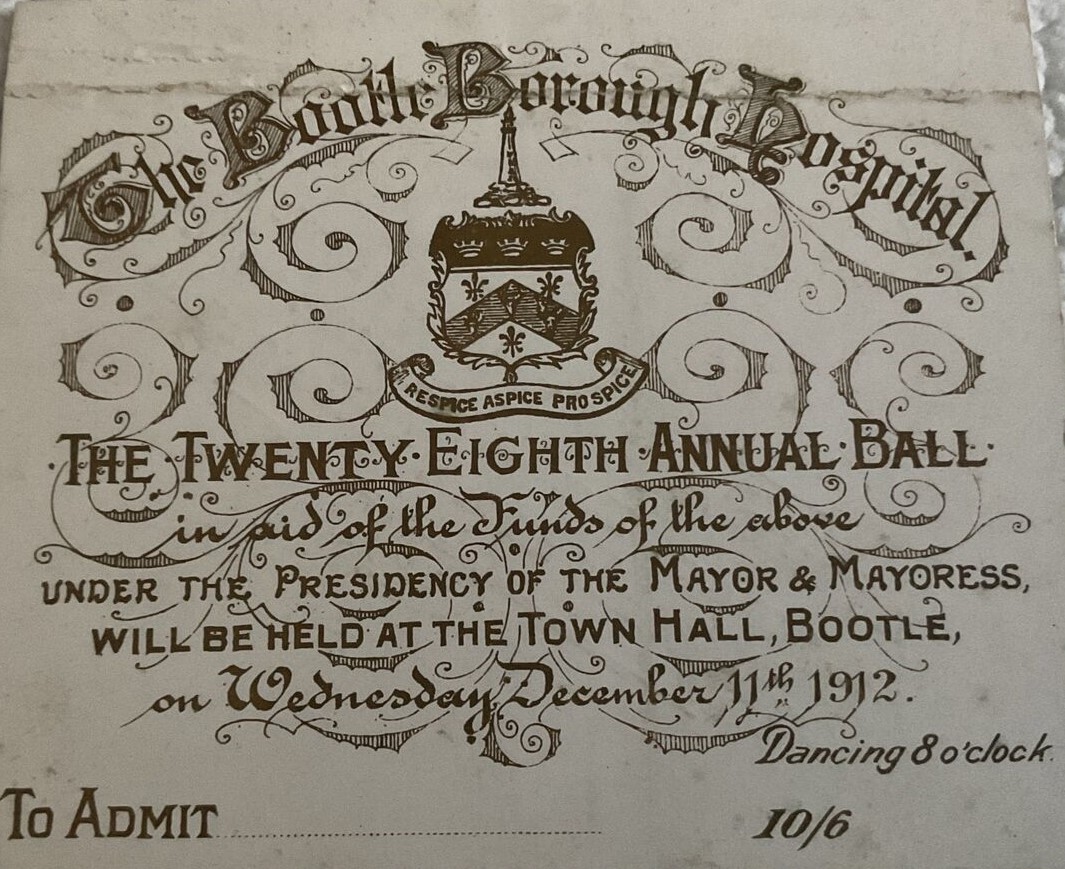 The Bootle Borough Hospital.
RESPICE ASPICE PROSPICE
THE TWENTY·EIGHTH·ANNUAL·BALL·
in aid of the Funds of the above
UNDER THE PRESIDENCY OF THE MAYOR & MAYORESS,
WILL BE HELD AT THE TOWN HALL, BOOTLE,
on Wednesday, December 11th 1912.
Dancing 8 o'clock.
TO ADMIT
10/6